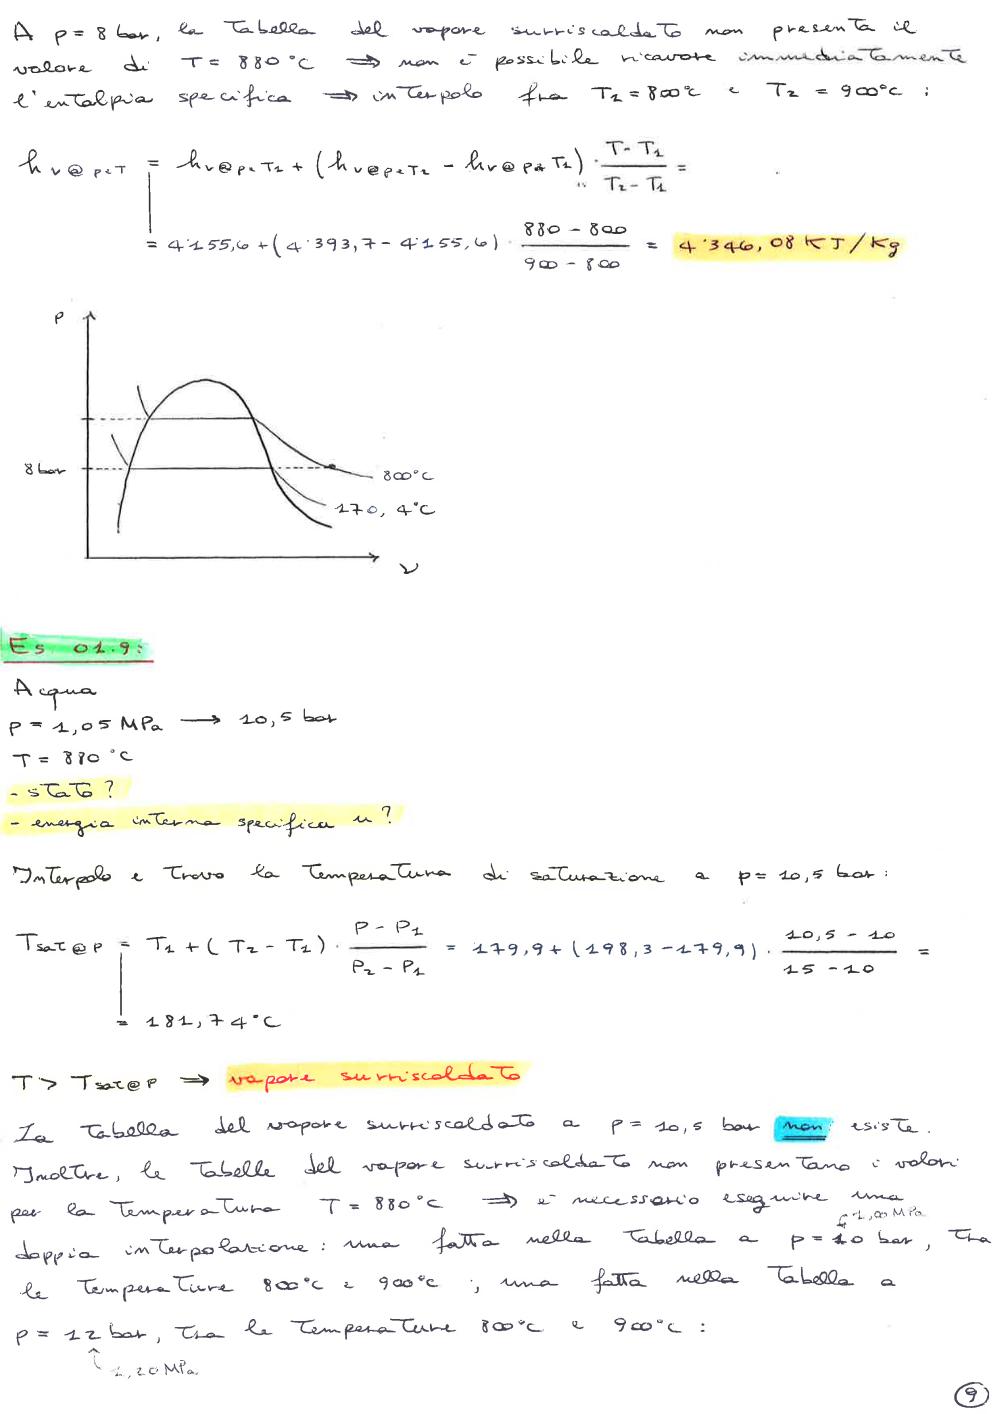 A p = 8 bar, la tabella del vapore surriscaldato non presenta il
valore di T = 880 °C ⇒ non è possibile ricavare immediatamente
l'entalpia specifica ⇒ interpolo fra T2 = 800°C e T2 = 900°C :
hv@peT = hv@peT1 + (hv@peT2 - hv@peT1) · (T - T1)/(T2 - T1) =
= 4'155,6 + (4'393,7 - 4'155,6) · (880 - 800)/(900 - 800) = 4'346,08 KJ/Kg
P
8 bar
800°C
170,4°C
v
Es. 01.9:
Acqua
p = 1,05 MPa → 10,5 bar
T = 880 °C
- stato?
- energia interna specifica u?
Interpolo e trovo la temperatura di saturazione a p = 10,5 bar :
Tsat@p = T1 + (T2 - T1) · (P - P1)/(P2 - P1) = 179,9 + (198,3 - 179,9) · (10,5 - 10)/(15 - 10) =
= 181,74°C
T > Tsat@p ⇒ vapore surriscaldato
La tabella del vapore surriscaldato a p = 10,5 bar non esiste.
Inoltre, le tabelle del vapore surriscaldato non presentano i valori
per la temperatura T = 880°C ⇒ è necessario eseguire una
1,00 MPa
doppia interpolazione : una fatta nella tabella a p = 10 bar, tra
le temperature 800°C e 900°C ; una fatta nella tabella a
p = 12 bar, tra le temperature 800°C e 900°C :
1,20 MPa
9